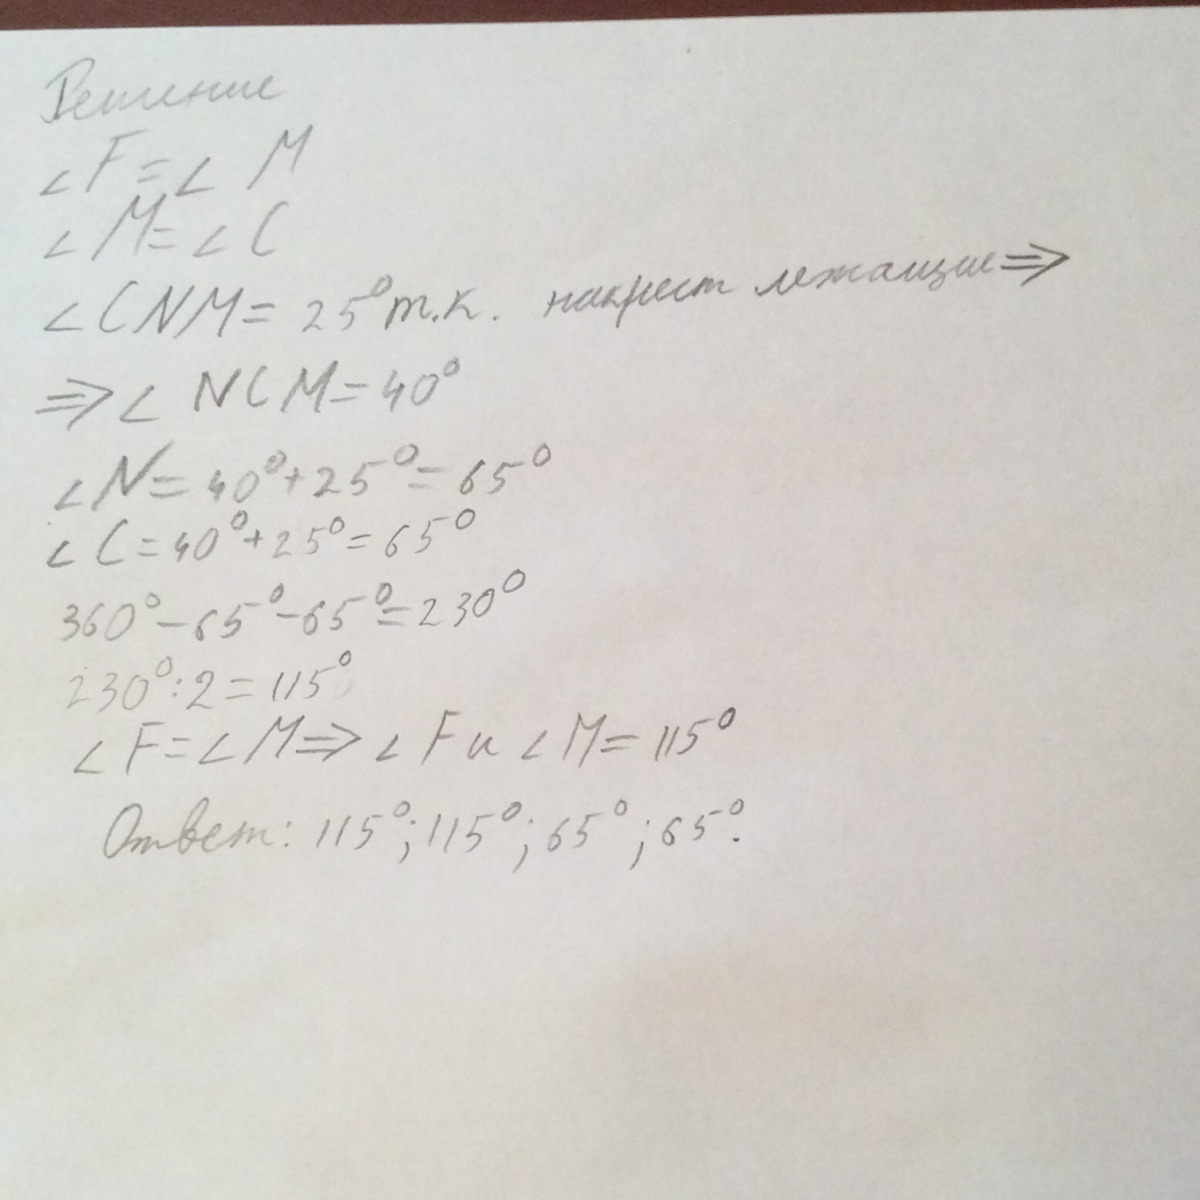 Решение
∠F=∠M
∠M=∠C
∠CNM=25° т.к. накрест лежащие⇒
⇒∠NCM=40°
∠N=40°+25°=65°
∠C=40°+25°=65°
360°-65°-65°=230°
230°:2=115°
∠F=∠M⇒∠F и ∠M=115°
Ответ: 115°;115°;65°;65°.